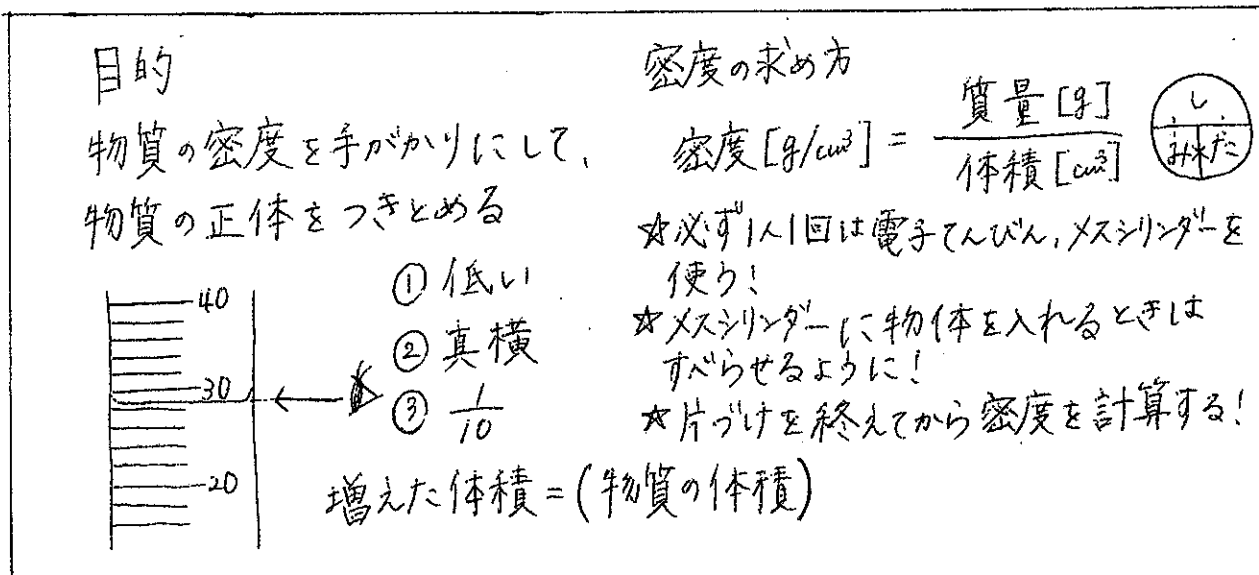 目的
物質の密度を手がかりにして、
物質の正体をつきとめる
40
30
20
① 低い
② 真横
③ 1/10
増えた体積=(物質の体積)
密度の求め方
密度[g/cm³] = 質量[g]/体積[cm³]
し
み*た
☆必ず1人1回は電子てんびん,メスシリンダーを
使う!
☆メスシリンダーに物体を入れるときは
すべらせるように!
☆片づけを終えてから密度を計算する!